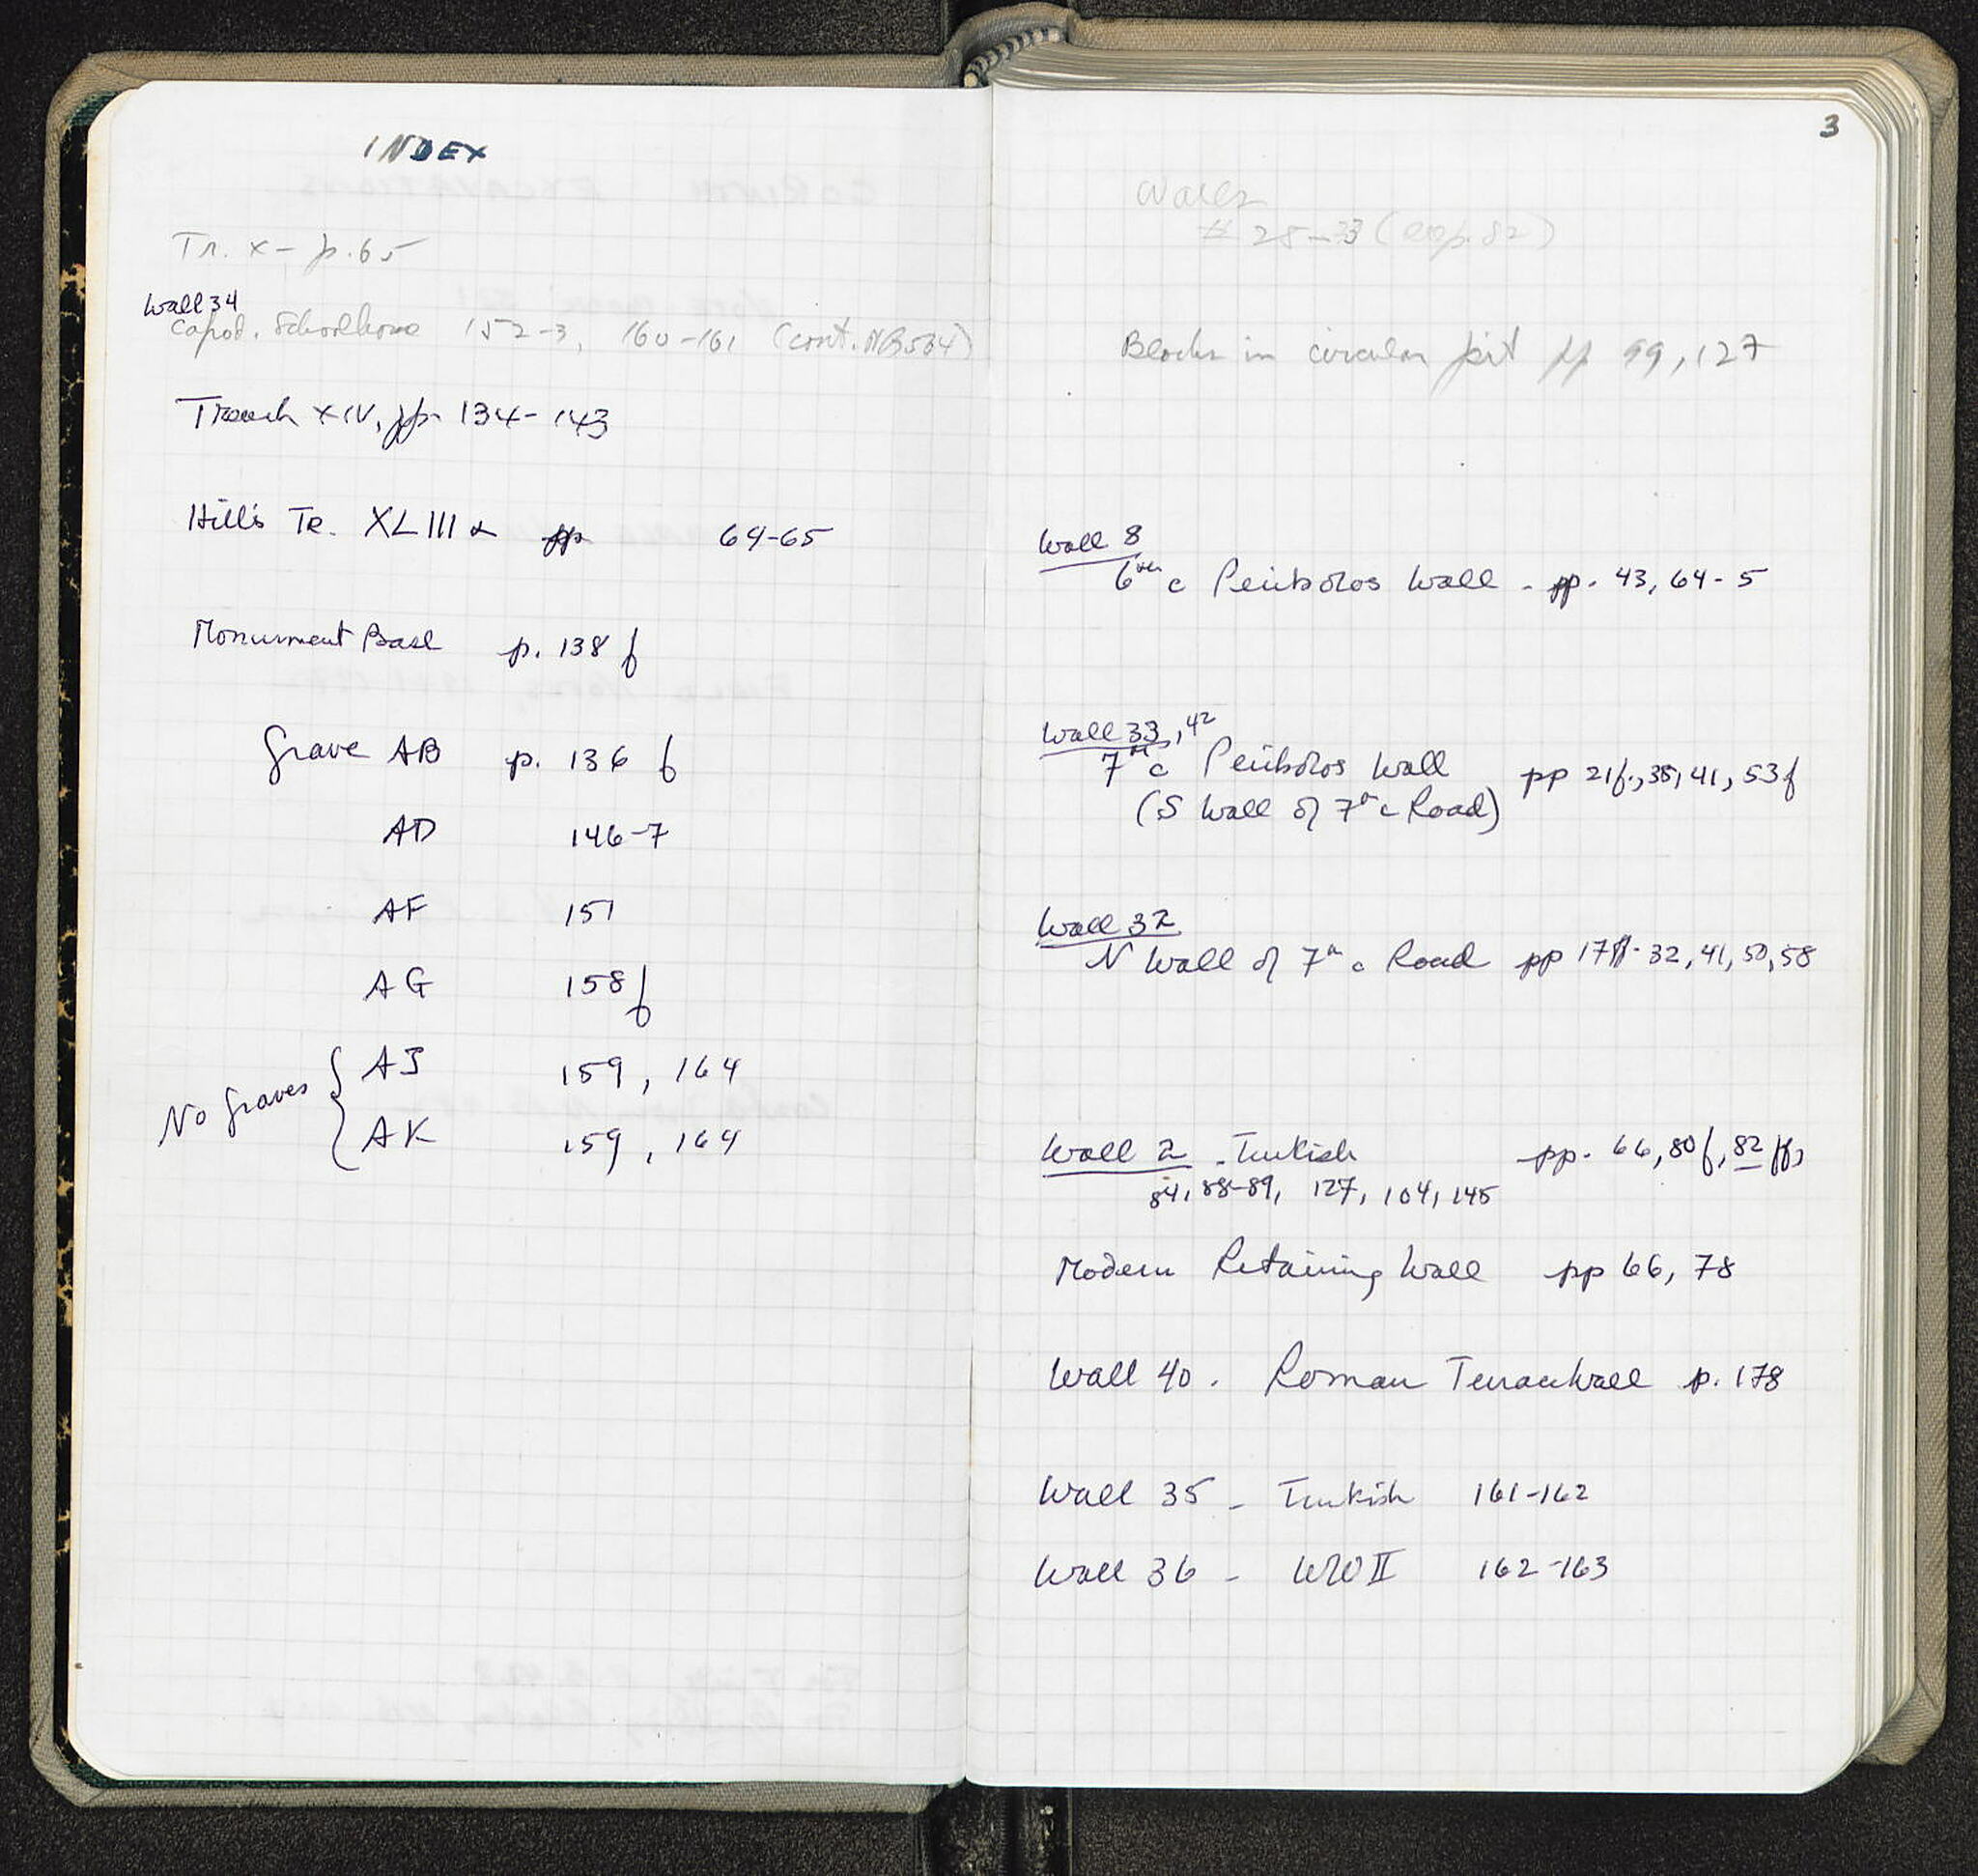 INDEX
Tr. X - p. 65
Wall 34
Capod. Schoolhouse 152-3, 160-161 (cont. NB 534)
Trench XIV, pp. 134-143
Hill's Tr. XLIII α pp 64-65
Monument Base p. 138 f
Grave AB p. 136 f
AD 146-7
AF 151
AG 158 f
No Graves { AJ 159, 164
AK 159, 164
3
Walls
# 28-33 (p. 82)
Blocks in circular pit pp 99, 127
Wall 8
6th c Peribolos Wall - pp. 43, 64-5
Wall 33, 42
7th c Peribolos Wall pp 21f., 38, 41, 53f
(S Wall of 7th c Road)
Wall 32
N Wall of 7th c Road pp 17ff. 32, 41, 50, 58
Wall 2 - Turkish pp. 66, 80f, 82 ff,
84, 88-89, 127, 104, 145
Modern Retaining Wall pp 66, 78
Wall 40. Roman Terrace Wall p. 178
Wall 35 - Turkish 161-162
Wall 36 - WW II 162-163